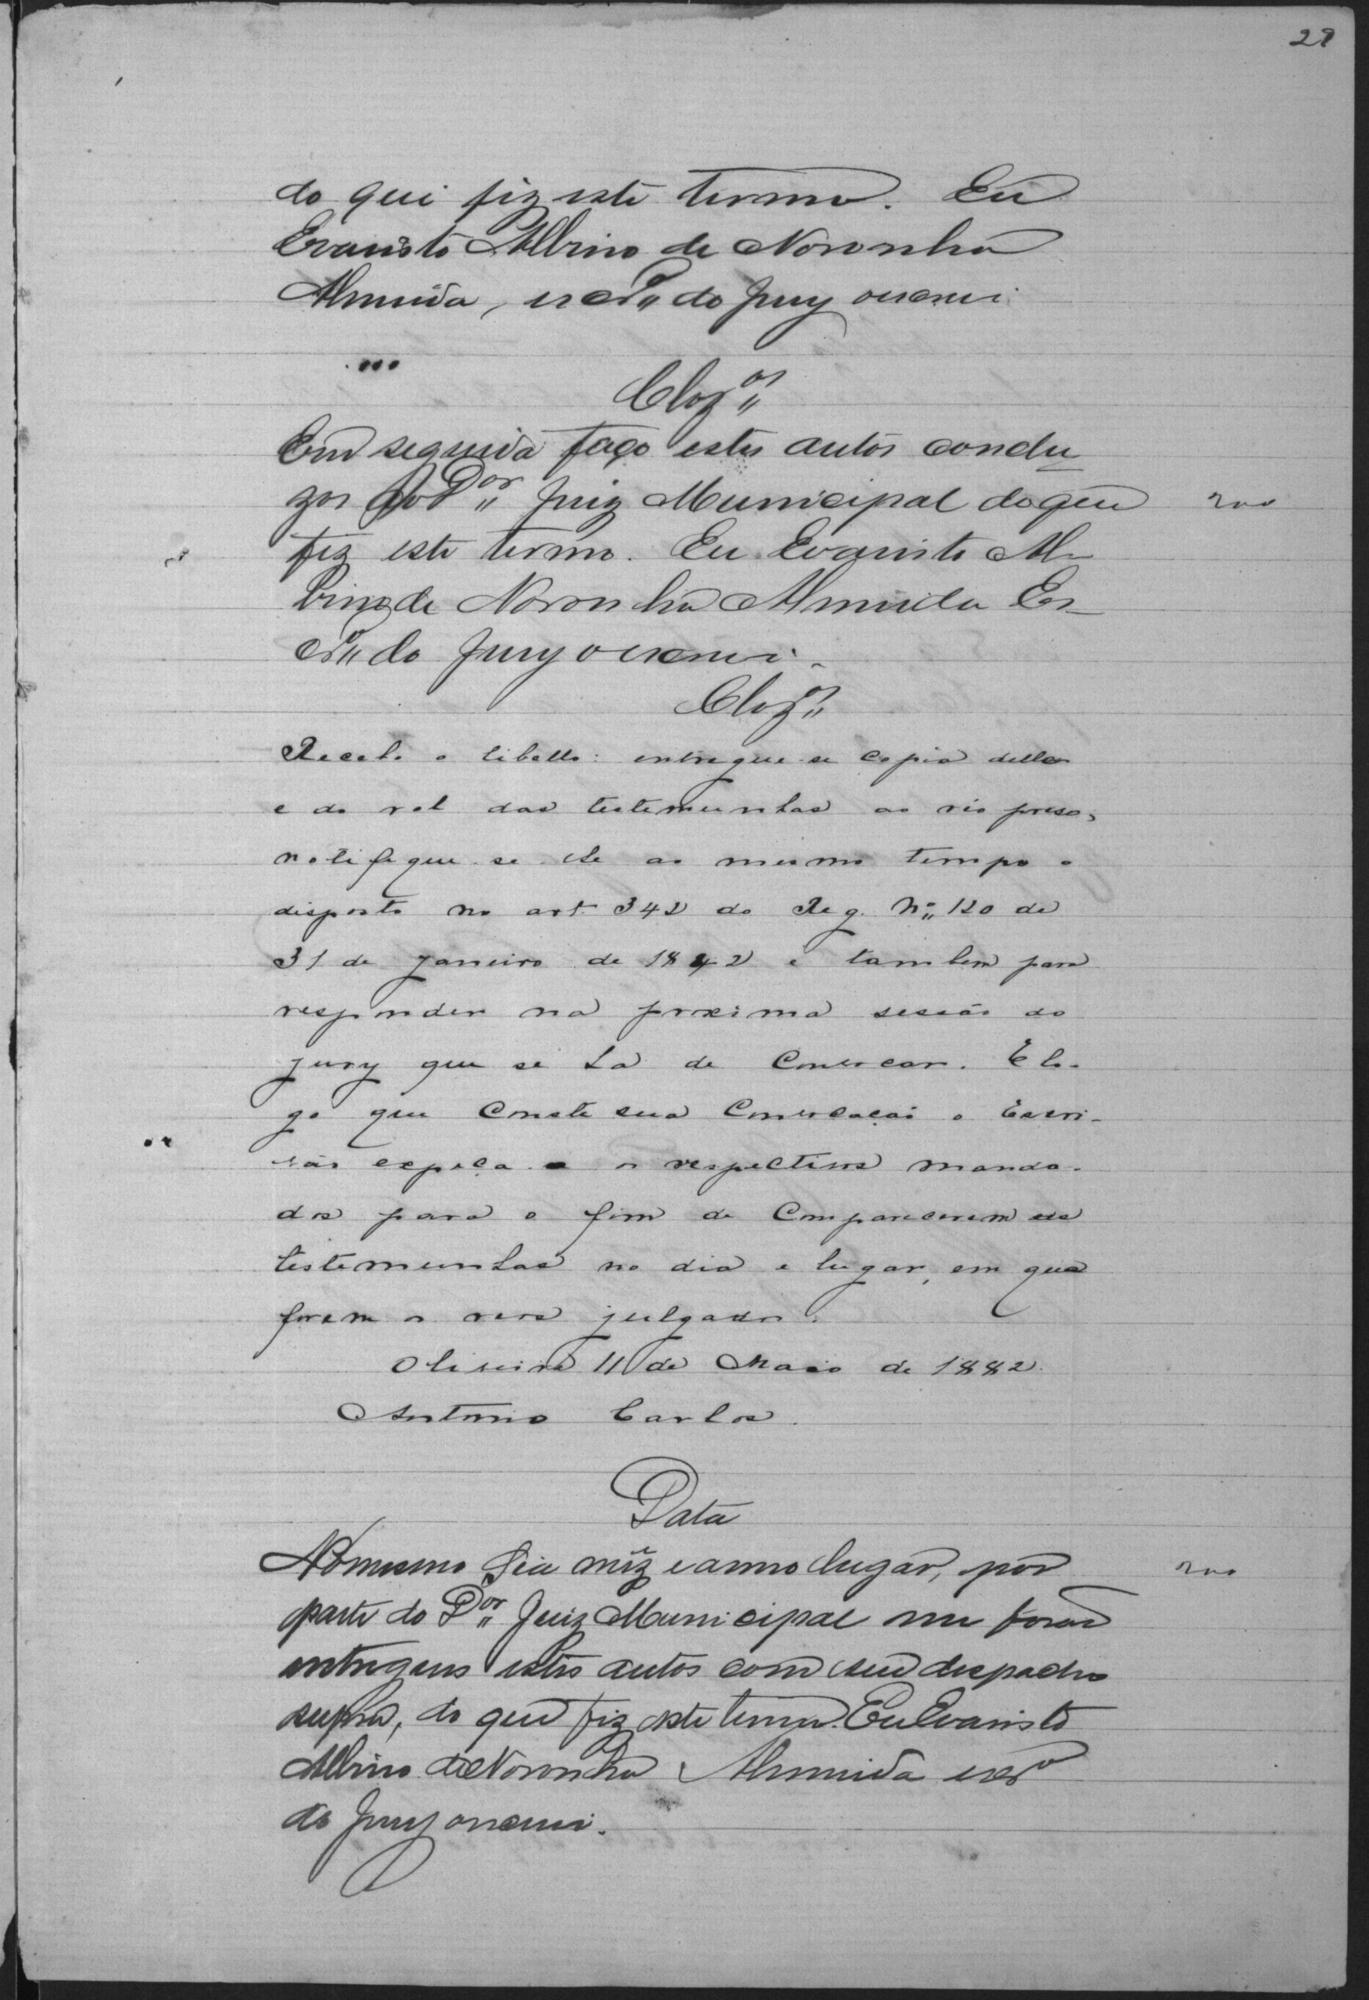 29
do que fiz este termo. Eu
Evaristo Albino de Noronha
Almeida, escr.ᵐ do Jury o escrevi.
Clozᵒˢ
Em seguida faço estes autos conclu
zos ao Dᵒʳ Juiz Municipal do que
200
fiz este termo. Eu Evaristo Al-
bino de Noronha Almeida Es-
crᵐ do Jury o escrevi.
Clozᵒˢ
Recebo o libello: entregue-se copia delle
e do rol das testemunhas ao réo preso,
notifique-se-lhe ao mesmo tempo o
disposto no art. 342 do Reg. Nº 120 de
31 de Janeiro de 1842 e tambem para
responder na proxima sessão do
jury que se ha de convocar. E lo-
go que conste sua convocação o Escri-
vão expeça os respectivos manda-
dos para o fim de comparecerem as
testemunhas no dia e lugar, em que
forem os reos julgados.
Oliveira 11 de Maio de 1882.
Antonio Carlos.
Data
No mesmo dia mêz e anno lugar, por
200
parte do Dᵒʳ Juiz Municipal me forão
entregues estes autos com seu despacho
supra, do que fiz este termo. Eu Evaristo
Albino de Noronha Almeida escrᵐ
do Jury o escrevi.